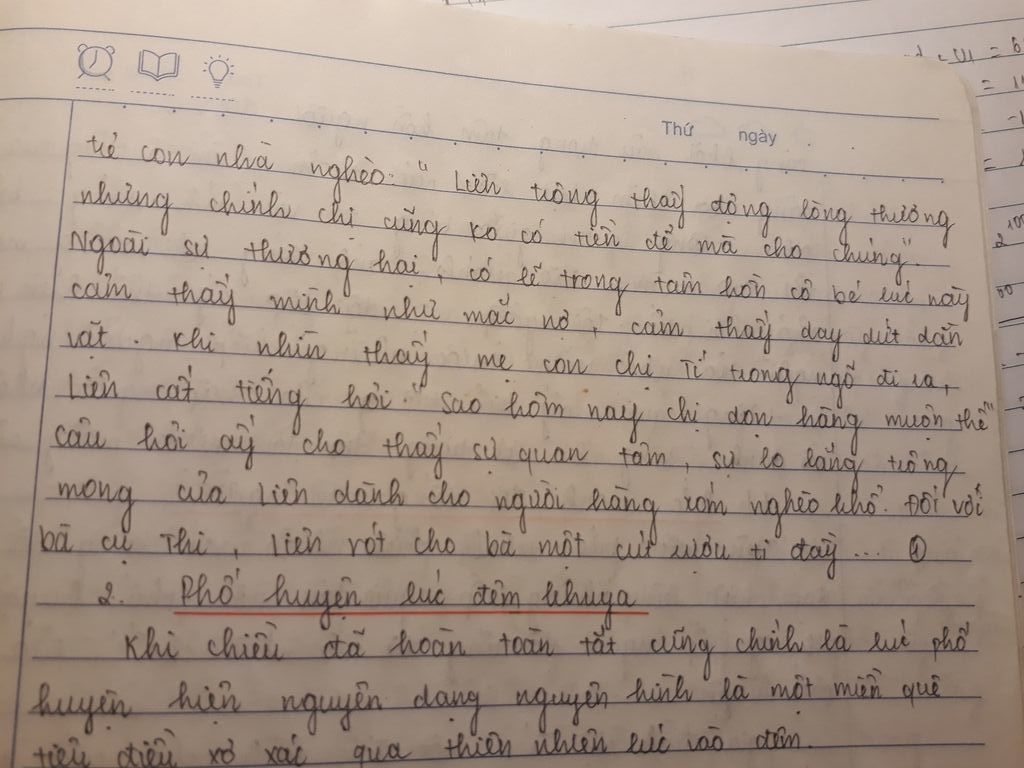 Thứ ngày
trẻ con nhà nghèo: "Liên trông thấy động lòng thương
nhưng chính chị cũng ko có tiền để mà cho chúng".
Ngoài sự thương hại, có lẽ trong tâm hồn cô bé lúc này
cảm thấy mình như mắc nợ, cảm thấy day dứt dằn
vặt. Khi nhìn thấy mẹ con chị Tí trong ngõ đi ra,
Liên cất tiếng hỏi "sao hôm nay chị dọn hàng muộn thế"
câu hỏi ấy cho thấy sự quan tâm, sự lo lắng trông
mong của Liên dành cho người hàng xóm nghèo khổ. Đối với
bà cụ Thi, Liên rót cho bà một cút rượu ti đầy... ①
2. Phố huyện lúc đêm khuya
Khi chiều đã hoàn toàn tắt cũng chính là lúc phố
huyện hiện nguyên dạng nguyên hình là một miền quê
tiêu điều xơ xác qua thiên nhiên lúc vào đêm.